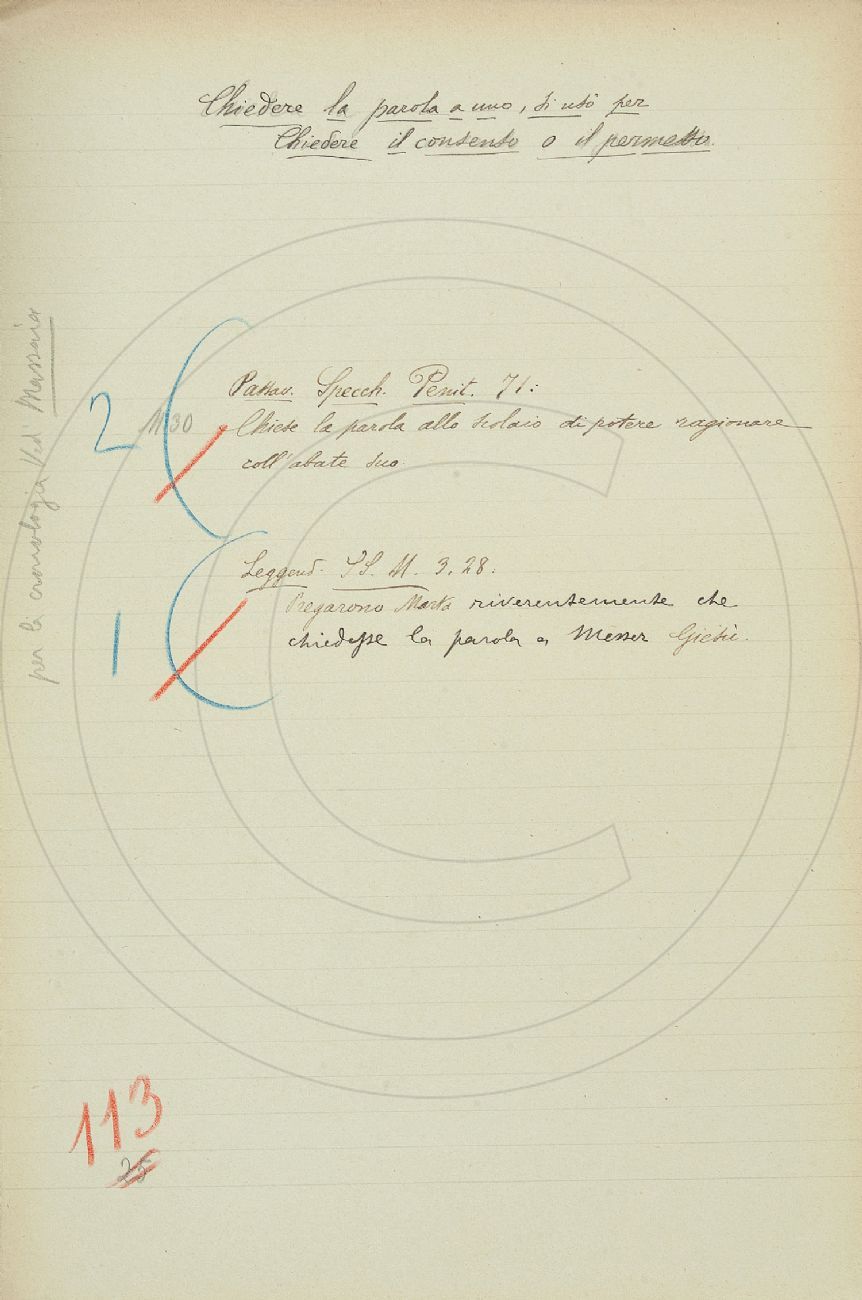 Chiedere la parola a uno, si usò per
Chiedere il consenso o il permesso.
per la cronologia Ved Massaia
2
Passav. Specch. Penit. 71:
Chiese la parola allo scolaio di potere ragionare
coll'abate suo
1
Leggend. SS. M. 3,28:
Pregarono Marta riverentemente che
chiedesse la parola a Messer Giesù.
113
25